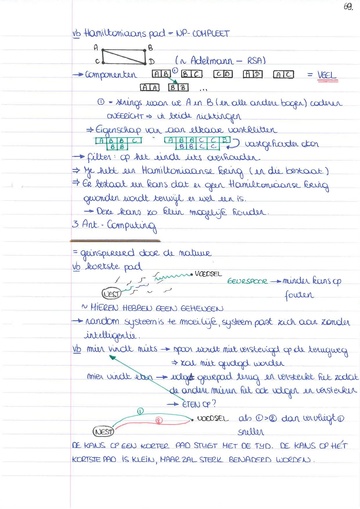 69.
vb Hamiltoniaans pad = NP-COMPLEET
A B
C D
(~ Adelmann - RSA)
→ Componenten AB BC CD AD AC = VEEL
AA BB ...
① = strings waar we A en B (en alle andere bogen) coderen
ONGERICHT ⇒ in beide richtingen
⇒ Eigenschap van aan elkaar vastkleven
ABBC ABBCCD vastgehouden door
BB BBCC
→ filter: op het einde iets overhouden
⇒ Je hebt een Hamiltoniaanse kring (en die bestaat)
⇒ Er bestaat een kans dat er geen Hamiltoniaanse kring
gevonden wordt terwijl er wel een is.
→ Deze kans zo klein mogelijk houden.
3 Ant-Computing
= geïnspireerd door de natuur
vb kortste pad
NEST VOEDSEL GEURSPOOR → minder kans op
fouten
~ MIEREN HEBBEN GEEN GEHEUGEN
→ random systeem is te moeilijk, systeem past zich aan zonder
intelligentie
vb mier vindt niets → spoor wordt niet verstevigd op de terugweg
⇒ zal niet gevolgd worden
mier vindt eten → volgt geurpad terug en versterkt het zodat
de andere mieren het ook volgen en versterken
→ ETEN OP?
① VOEDSEL als ①>② dan vervliegt ①
NEST ② sneller
DE KANS OP EEN KORTER PAD STIJGT MET DE TIJD. DE KANS OP HÉT
KORTSTE PAD IS KLEIN, MAAR ZAL STERK BENADERD WORDEN.